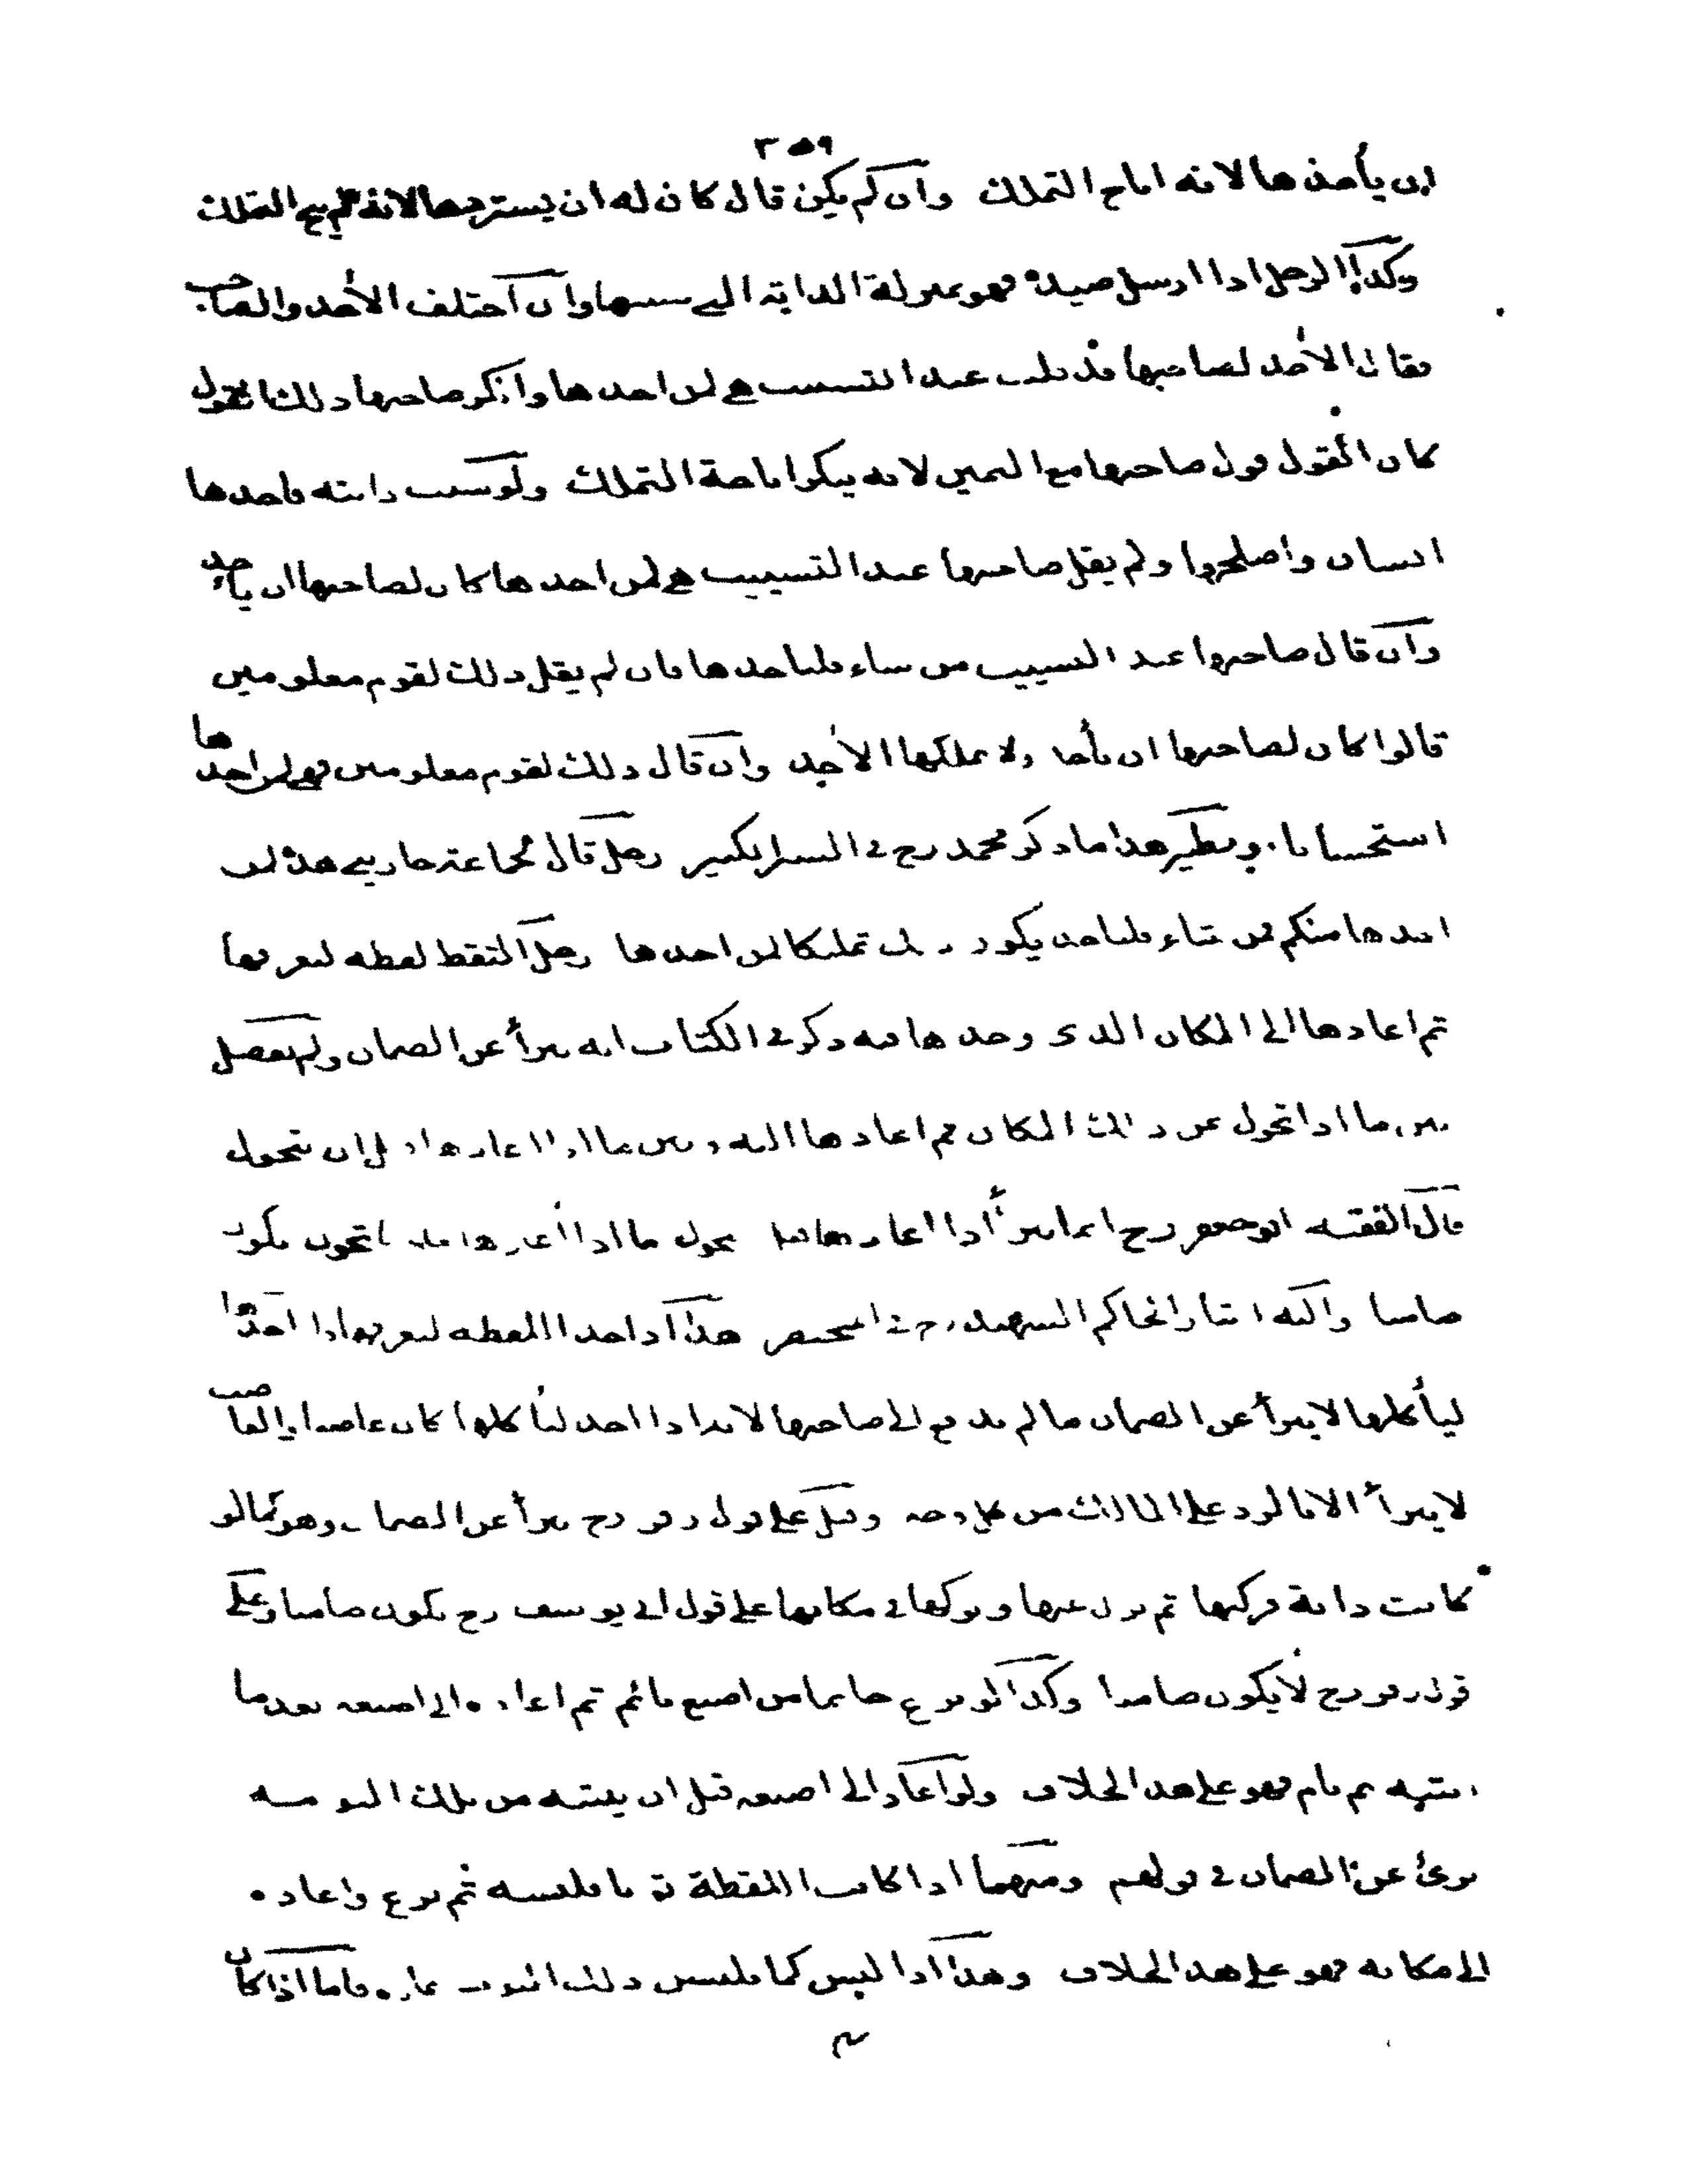 ٣٥٩
ان يأخذها لانه اباح التملك وان لم يكن قال كان له ان يستردها لانه لم يبح التملك
وكذا الرجل اذا ارسل صيده فهو بمنزلة الدابة التي سيبها وان اختلف الأخذ والصاحب
فقال الأخذ لصاحبها قد قلت عند التسييب هي لمن اخذها وانكر صاحبها ذلك القول
كان القول قول صاحبها مع اليمين لانه ينكر اباحة التملك ولو سيب دابته فاخذها
انسان واصلحها ولم يقل صاحبها عند التسييب هي لمن اخذها كان لصاحبها ان يأخذ
وان قال صاحبها عند التسييب من شاء فليأخذها فان لم يقل ذلك لقوم معلومين
قالوا كان لصاحبها ان يأخذها ولا يملكها الأخذ وان قال ذلك لقوم معلومين فهي لمن اخذها
استحسانا ونظير هذا ما ذكر محمد رح في السير الكبير رجل قال لجماعة جاريتي هذه لمن
اخذها منكم فمن شاء فليأخذ يكون ذلك تمليكا لمن اخذها رجل التقط لقطة ليعرفها
ثم اعادها الى المكان الذي وجدها فيه ذكر في الكتاب انه يبرأ عن الضمان ولم يفصل
بين ما اذا تحول عن ذلك المكان ثم اعادها اليه وبين ما اذا اعادها قبل ان يتحول
قال الفقيه ابو جعفر رح انما يبرأ اذا اعادها قبل التحول اما اذا اعادها بعد ما تحول يكون
ضامنا واليه اشار الحاكم الشهيد رح في المختصر هذا اذا اخذ اللقطة ليعرفها اذا اخذها
ليأكلها لا يبرأ عن الضمان ما لم يدفع الى صاحبها لانه اذا اخذ ليأكلها كان غاصبا والغاصب
لا يبرأ الا بالرد على المالك من كل وجه وقيل على قول زفر رح يبرأ عن الضمان وهو كما لو
كانت دابة فركبها ثم نزل عنها وتركها في مكانها على قول ابي يوسف رح يكون ضامنا وعلى
قول زفر رح لا يكون ضامنا وكذا لو نزع خاتما من اصبع نائم ثم اعاده الى اصبعه بعد ما
انتبه ثم نام فهو على هذا الخلاف ولو اعاد الى اصبعه قبل ان ينتبه من تلك النومة
برئ عن الضمان في قولهم ومنها اذا كانت اللقطة ثوبا فلبسه ثم نزع واعاده
الى مكانه فهو على هذا الخلاف وهذا اذا لبس كما يلبس ذلك الثوب عادة فاما اذا كان